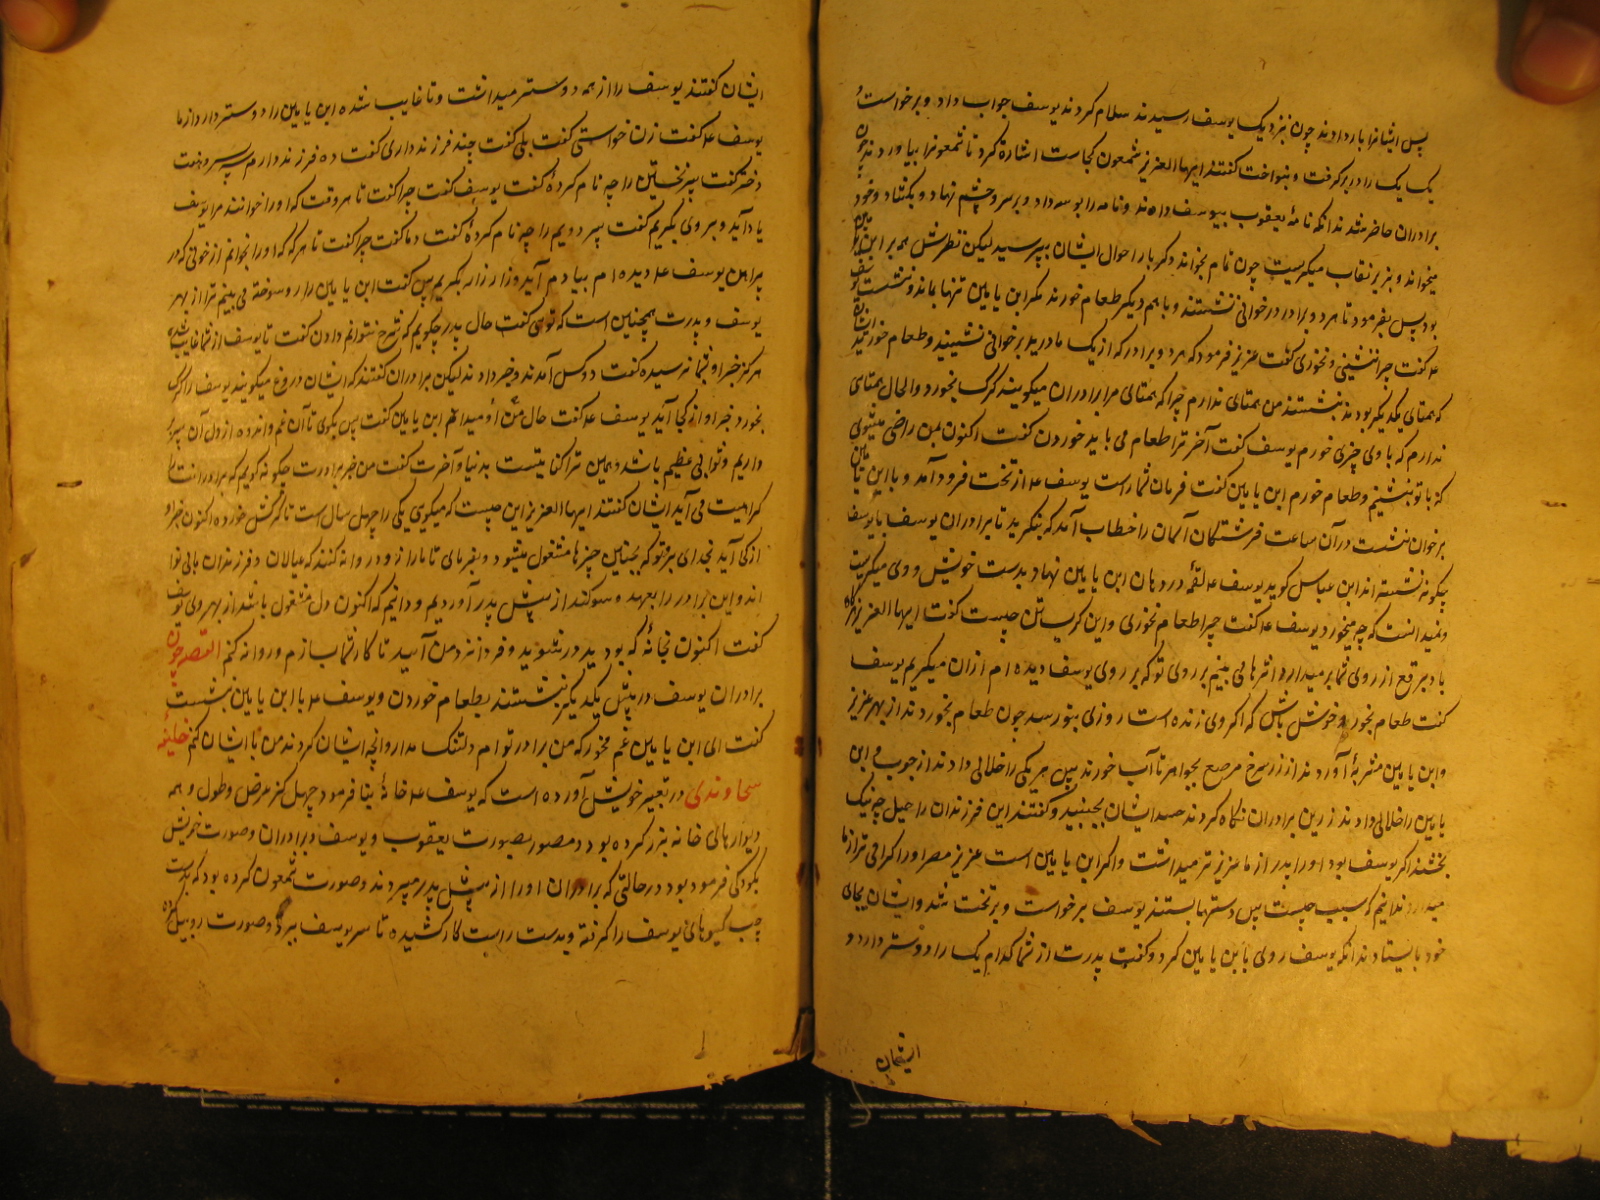 پس ایشانرا بار دادند چون نزدیک یوسف رسیدند سلام کردند یوسف جواب داد و برخواست و
یک یک را در بر کرفت و بنواخت کفتند ایها العزیز شمعون کجاست اشاره کرد تا شمعونرا بیاوردند چون
برادران حاضر شدند انکه نامهٔ یعقوب بیوسف دادند و نامه را بوسه داد و بر سر و چشم نهاد و بکشاد و خود
میخواند و بزیر نقاب میکریست چون تمام بخواند دکر بار احوال ایشان بپرسید لیکن نظرش همه بر ابن یامین
بود پس بفرمود تا هر دو برادر در خوانی نشستند و با هم دیکر طعام خورند مکر ابن یامین تنها بماند و ننشست یوسف
عه کفت چرا ننشینی و نخوری کفت عزیز فرمود که هر دو برادر که از یک مادرید بر خوانی نشینید و طعام خورید ایشان
که همتای یکدیکر بودند بنشستند من همتای ندارم چرا که همتای مرا برادران میکویند کرک بخورد و الحال همتای
ندارم که با وی چیزی خورم یوسف کفت آخر ترا طعام می باید خوردن کفت اکنون بمن راضی میشوی
که با تو بنشینم و طعام خورم ابن یامین کفت فرمان شما راست یوسف عه از تخت فرود آمد و با ابن یامین
بر خوان نشست در آن ساعت فرشتکان آسمان را خطاب آمد که بنکرید تا برادران یوسف با یوسف
چکونه نشسته اند ابن عباس کوید یوسف عه لقمهٔ در دهان ابن یامین نهاد بدست خویش و وی میکریست
و نمیدانست که چه میخورد یوسف عه کفت چرا طعام نخوری و این کریستن چیست کفت ایها العزیز هرکاه
باد برقع از روی شما بر میدارد اثرهائی بینم بر روی تو که بر روی یوسف دیده ام ازان میکریم یوسف
کفت طعام بخور و خوش باش که اکر وی زنده است روزی بتو رسد چون طعام بخوردند از بهر عزیز
و ابن یامین مشربهٔ آوردند از زر سرخ مرصع بجواهر تا آب خورند پس هر یکی را خلالی دادند از چوب و ابن
یامین را خلالی دادند زرین برادران نکاه کردند حسد ایشان بجنبید و کفتند این فرزندان راحیل چه نیک
بختند اکر یوسف بود او را پدر از ما عزیزتر میداشت و اکر ابن یامین است عزیز مصر او را کرامی تر از ما
میدارد ندانیم که سبب چیست پس دستها بشستند یوسف برخواست و بر تخت شد و ایشان بجای
خود بایستادند انکه یوسف روی با ابن یامین کرد و کفت پدرت از شما کدام یک را دوستر دارد و
ایشان
ایشان کفتند یوسف را از همه دوستر میداشت و تا غایب شده ابن یامین را دوستر دارد از ما
یوسف عه کفت زن خواستی کفت بلی کفت چند فرزند داری کفت ده فرزند دارم سه پسر و هفت
دختر کفت پسر نخستین را چه نام کردهٔ کفت یوسف کفت چرا کفت تا هر وقت که او را خوانند مرا یوسف
یاد آید و بر وی بکریم کفت پسر دویم را چه نام کردهٔ کفت دما کفت چرا کفت تا هر که که او را بخوانم از خونی که در
پیراهن یوسف عه دیده ام بیادم آید و زار زار بکریم پس کفت ابن یامین را رو سوخته می بینم ترا از بهر
یوسف و پدرت همچنین است که توئی کفت حال پدر چکویم که شرح نتوانم دادن کفت تا یوسف از شما غایب شده
هرکز خبر او بشما نرسیده کفت دو کس آمدند و خبر دادند لیکن برادران کفتند که ایشان دروغ میکویند یوسف را کرک
بخورد خبر او از کجا آید یوسف عه کفت حال من او میدانم ابن یامین کفت پس بکوی تا آن غم و انده از دل آن پیر
داریم و ثوابی عظیم باشد و همین ترا کفایتست بدنیا و آخرت کفت من خبر برادرت چکونه کویم که برادرانت را
کراهیت می آید ایشان کفتند ایها العزیز این چیست که میکوی یکی را چهل سال است تا کرکش خورده اکنون خبر او
از کی آید بخدای بر تو که بچنین چیزها مشغول مشو و بفرمای تا ما را زود روانه کنند که عیالان و فرزندان بی نوا
اند و این برادر را بعهد و سوکند از پیش پدر آوردیم و دانیم که اکنون دل مشغول باشد از بهر وی یوسف
کفت اکنون بخانهٔ که بودید در شوید و فردا نزد من آئید تا کار شما بسازم و روانه کنم القصه چون
برادران یوسف در پیش یکدیکر بنشستند بطعام خوردن و یوسف عه با ابن یامین بنشست
کفت ای ابن یامین غم مخور که من برادر توام دلتنک مدار و انچه ایشان کردند من با ایشان نکنم خلیفه
سجاوندی در تفسیر خویش آورده است که یوسف عه خانهٔ بنا فرمود چهل کز عرض و طول و همه
دیوارهای خانه بزر کرده بود و مصور بصورت یعقوب و یوسف و برادران و صورت خویش
بکودکی فرموده بود در حالتی که برادران او را از پیش پدر میبردند و صورت شمعون کرده بود که بدست
چپ کیسوهای یوسف را کرفته و بدست راست کارد کشیده تا سر یوسف ببرد و صورت روبیل کرده